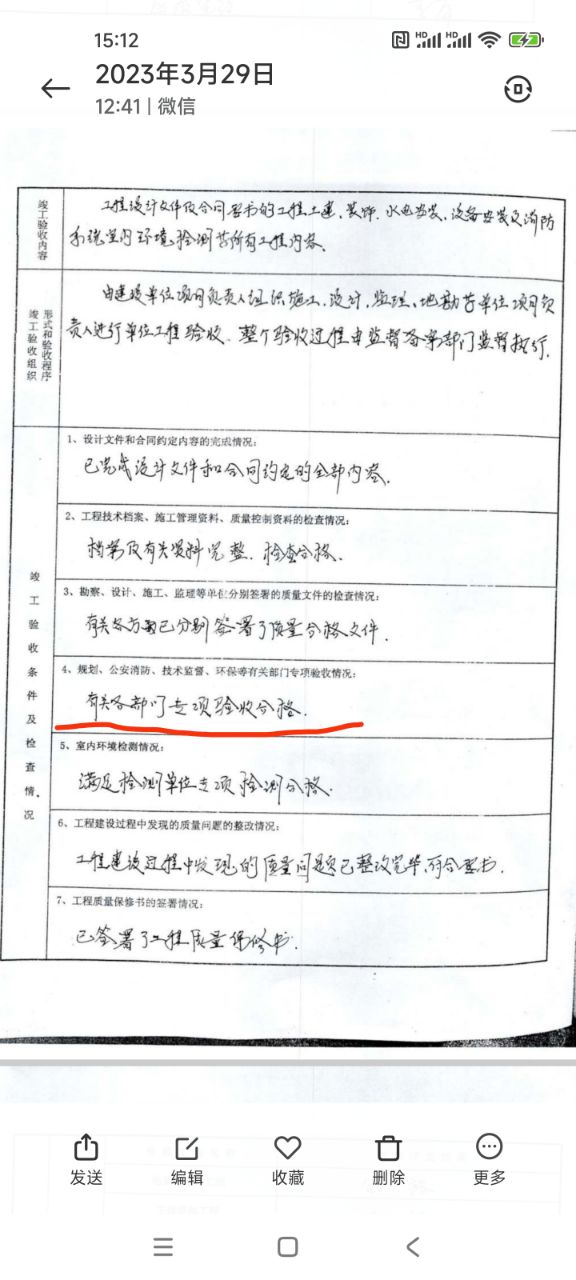 15:12
2023年3月29日
12:41 | 微信
竣工验收内容
工程设计文件及合同要求的工程土建、装饰、水电安装、设备安装及消防
系统室内环境检测等所有工程内容。
竣工验收组织
形式和验收程序
由建设单位项目负责人组织施工、设计、监理、地勘等单位项目负
责人进行单位工程验收、整个验收过程由监督备案部门监督执行.
竣工验收条件及检查情况
1、设计文件和合同约定内容的完成情况:
已完成设计文件和合同约定的全部内容.
2、工程技术档案、施工管理资料、质量控制资料的检查情况:
档案及有关资料完整、检查合格.
3、勘察、设计、施工、监理等单位分别签署的质量文件的检查情况:
有关各方面已分别签署了质量合格文件.
4、规划、公安消防、技术监督、环保等有关部门专项验收情况:
有关各部门专项验收合格.
5、室内环境检测情况:
满足检测单位专项检测合格.
6、工程建设过程中发现的质量问题的整改情况:
工程建设过程中发现的质量问题已整改完毕,符合要求.
7、工程质量保修书的签署情况:
已签署了工程质量保修书.
发送
编辑
收藏
删除
更多